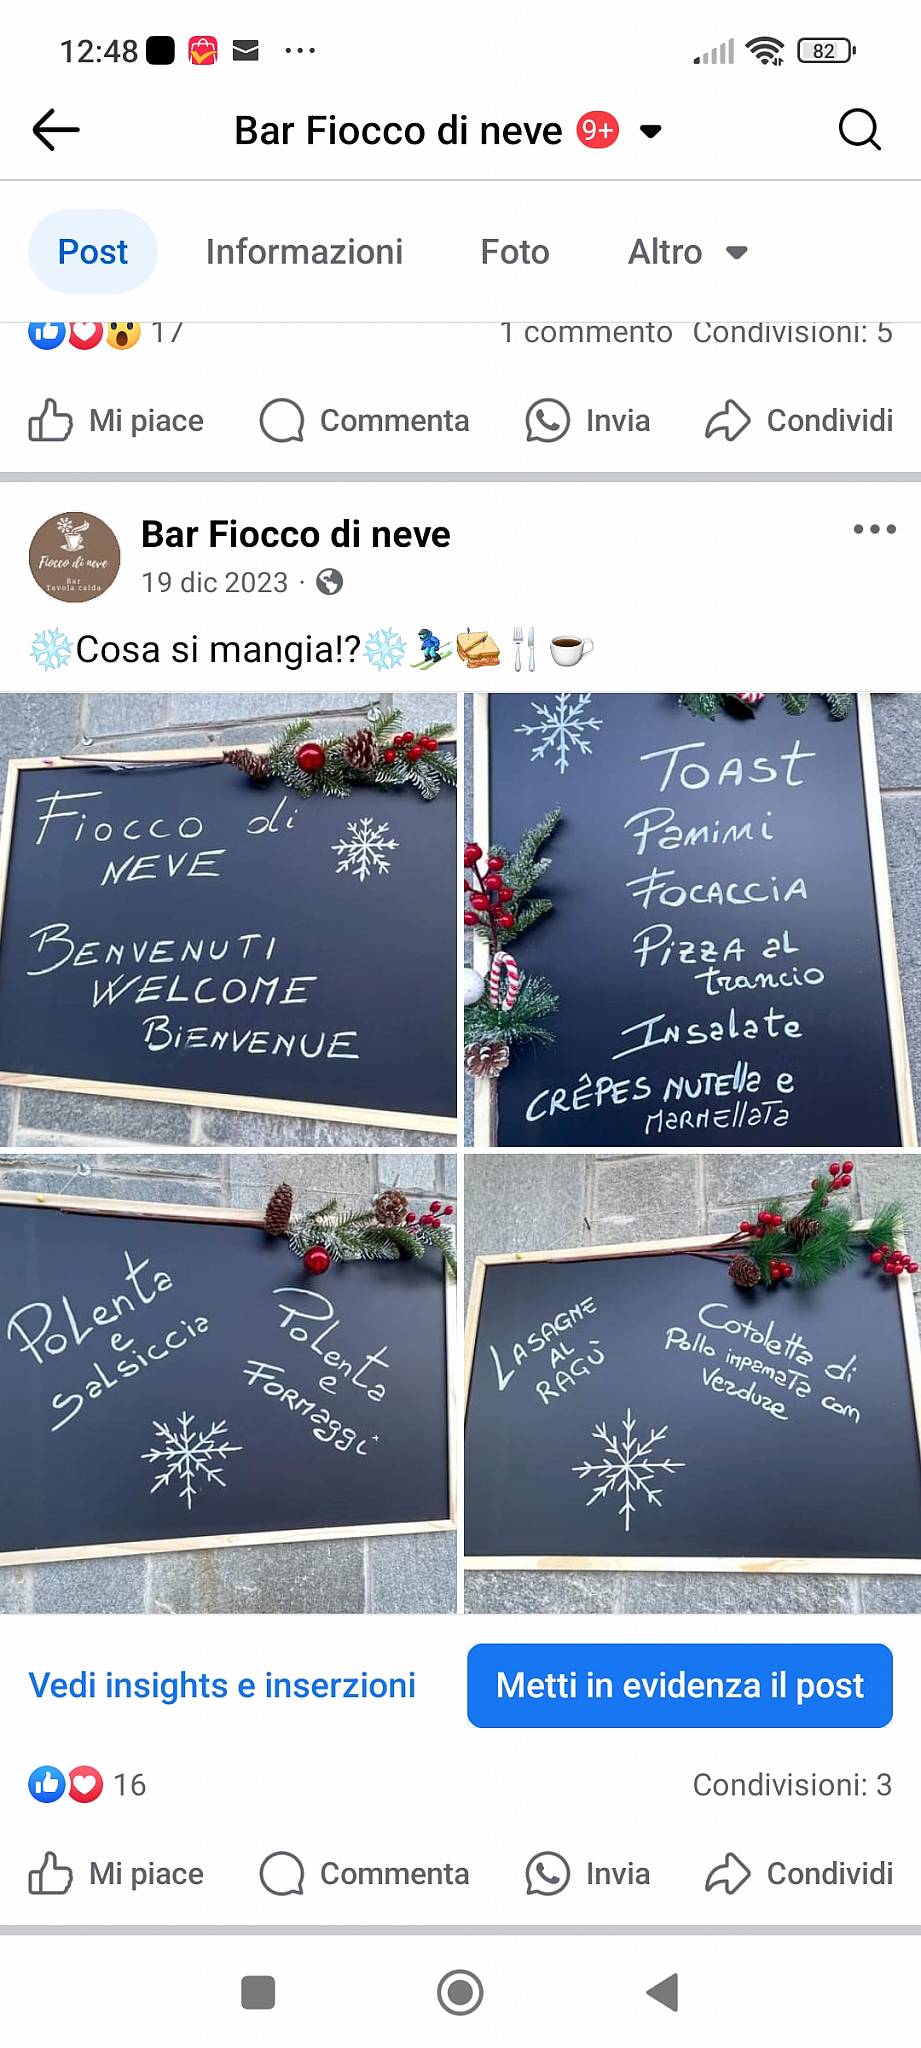 12:48
82
Bar Fiocco di neve 9+
Post Informazioni Foto Altro
17 1 commento Condivisioni: 5
Mi piace Commenta Invia Condividi
Fiocco di neve
Bar
Tavola calda
Bar Fiocco di neve
19 dic 2023 ·
❄️Cosa si mangia!?❄️⛷️🥪🍴☕
Fiocco di
NEVE
BENVENUTI
WELCOME
BIENVENUE
TOAST
Panini
FOCACCIA
PIZZA al
trancio
Insalate
CRÊPES NUTElla e
MARMEllaTa
Polenta
e
Salsiccia
Polenta
e
FORMaggi
LASAGNE
AL
RAGÙ
Cotoletta di
Pollo impanata con
Verdure
Vedi insights e inserzioni Metti in evidenza il post
16 Condivisioni: 3
Mi piace Commenta Invia Condividi